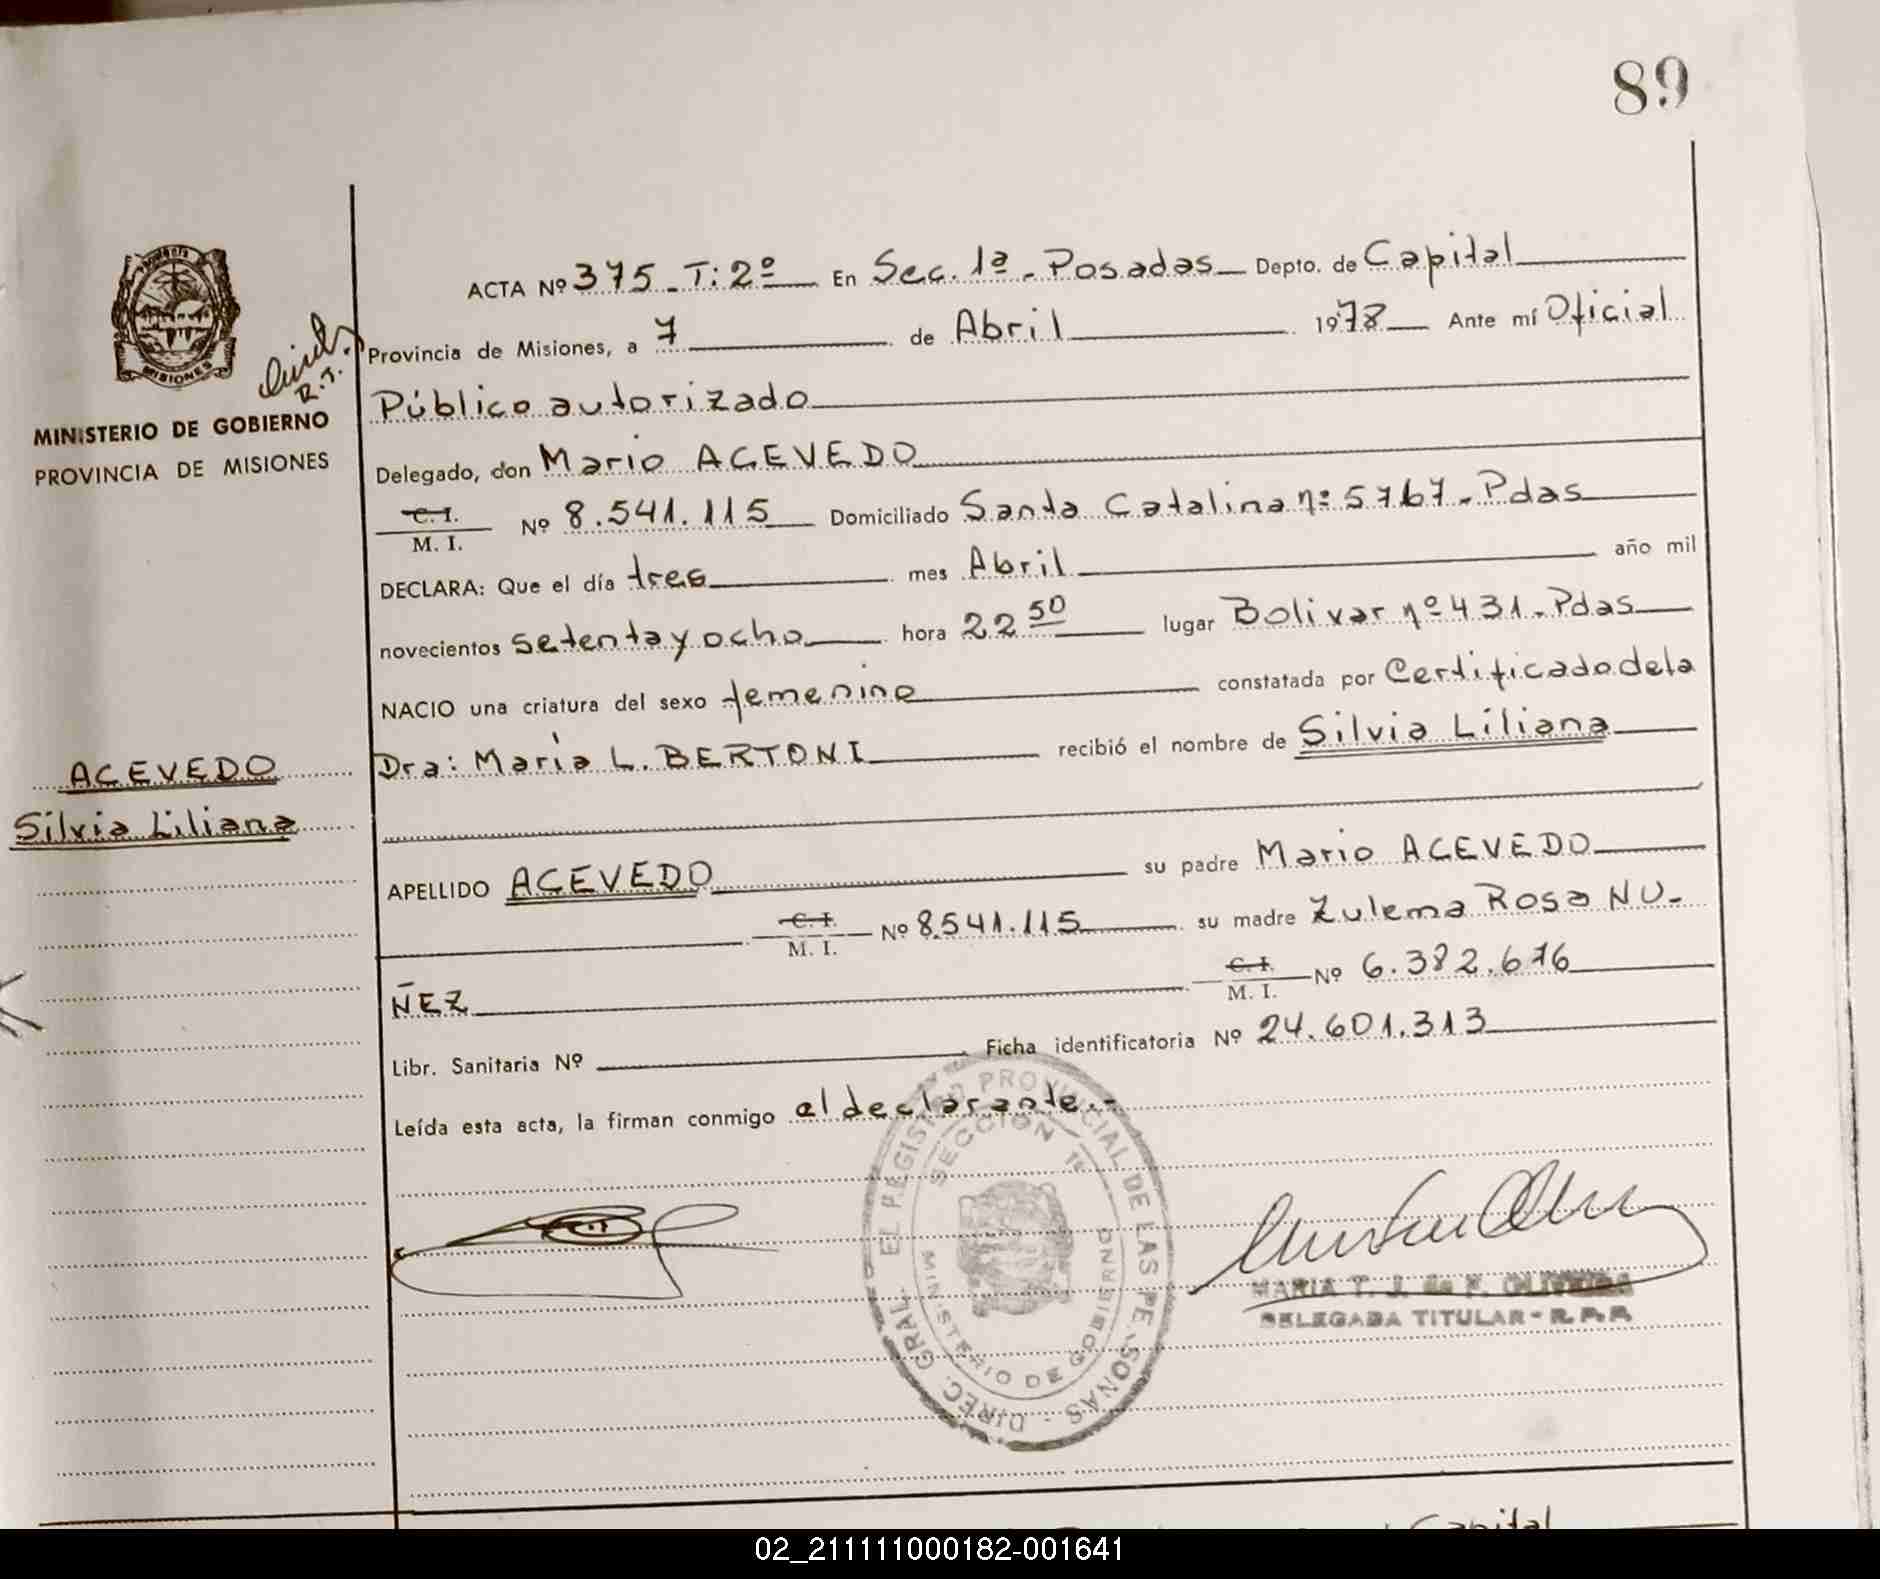 89
ACTA Nº 375 - T: 2º En Sec. 1ª - Posadas Depto. de Capital
Provincia de Misiones, a 7 de Abril 1978 Ante mí Oficial
Público autorizado
R.T.
MINISTERIO DE GOBIERNO
PROVINCIA DE MISIONES
MISIONES
Delegado, don Mario ACEVEDO
C. I.
M. I. Nº 8.541.115 Domiciliado Santa Catalina nº 5767 - Pdas
DECLARA: Que el día tres mes Abril año mil
novecientos setenta y ocho hora 22 50 lugar Bolivar nº 431 - Pdas
NACIO una criatura del sexo femenino constatada por Certificado de la
Dra: María L. BERTONI recibió el nombre de Silvia Liliana
ACEVEDO
Silvia Liliana
APELLIDO ACEVEDO su padre Mario ACEVEDO
C. I.
M. I. Nº 8.541.115 su madre Zulema Rosa NU-
ÑEZ C. I.
M. I. Nº 6.382.676
Libr. Sanitaria Nº Ficha identificatoria Nº 24.601.313
Leída esta acta, la firman conmigo el declarante.-
DIREC. GRAL. EL REGISTRO PROVINCIAL DE LAS PERSONAS -
SECCION 1ª
MINISTERIO DE GOBIERNO
MARIA T. J. de F. OLIVEIRA
DELEGADA TITULAR - R.P.P.
Capital
02_211111000182-001641